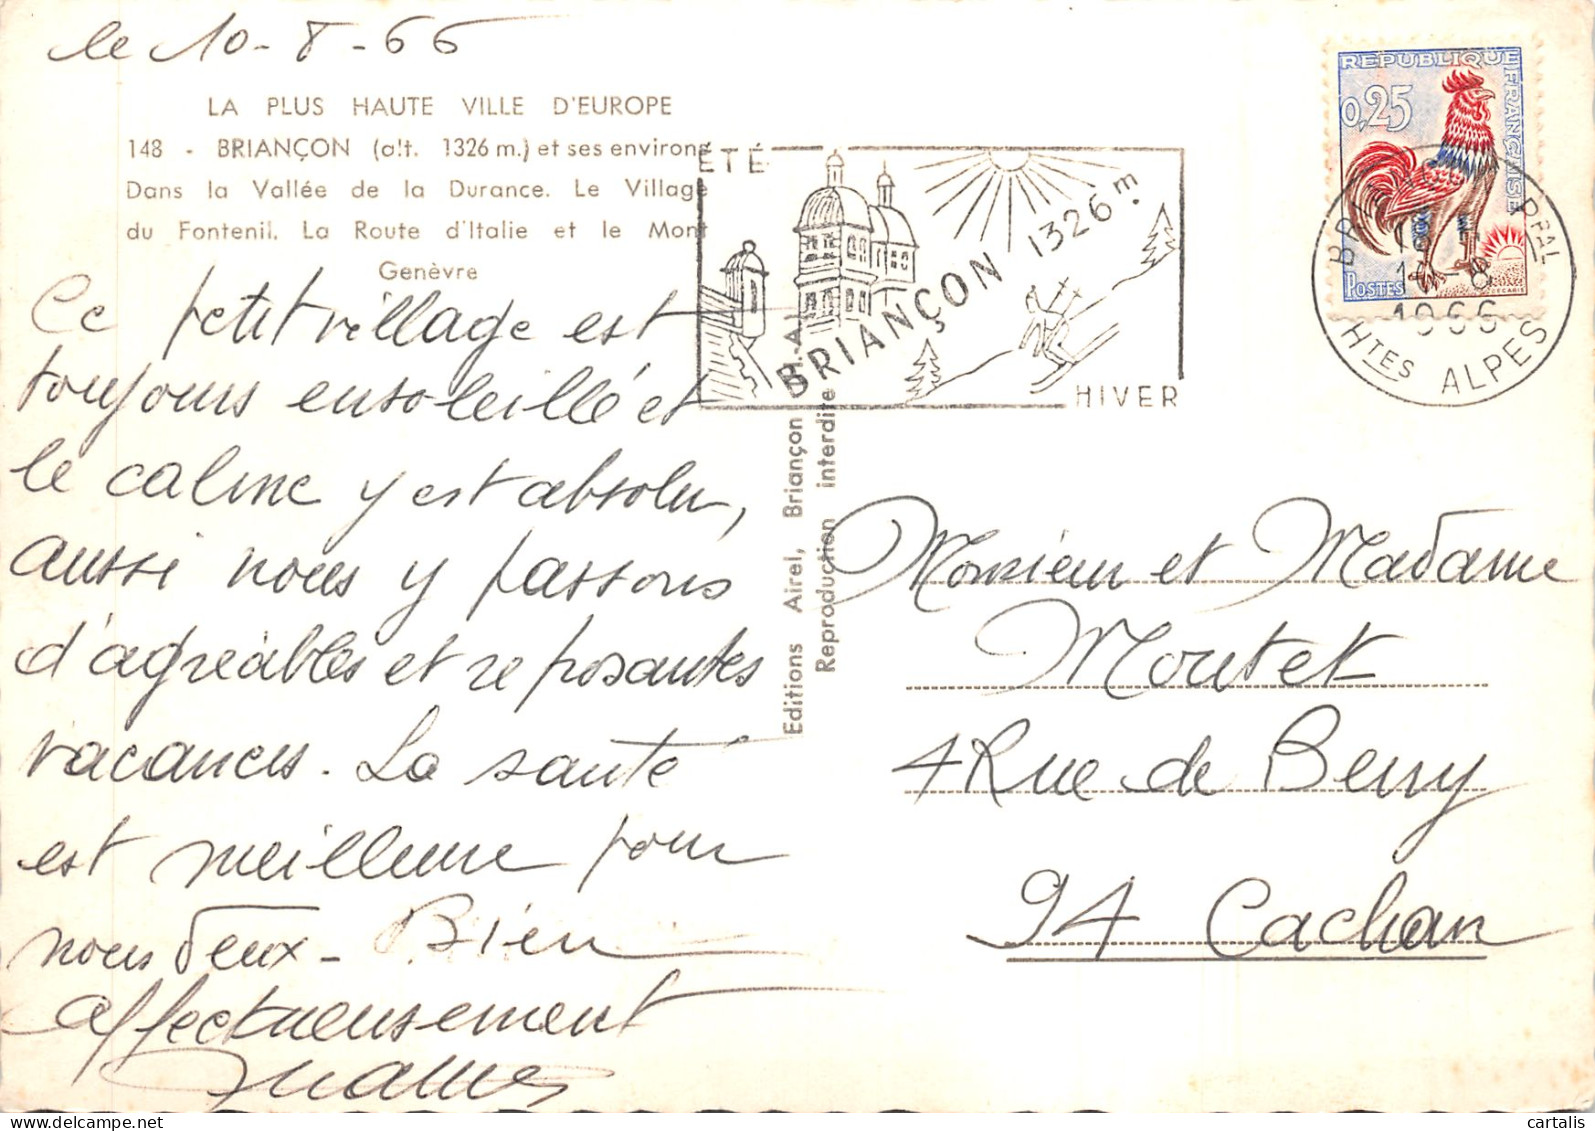 le 10-8-66
LA PLUS HAUTE VILLE D'EUROPE
148 - BRIANÇON (alt. 1326 m.) et ses environs
Dans la Vallée de la Durance. Le Village
du Fontenil. La Route d'Italie et le Mont
Genèvre
Ce petit village est
toujours ensoleillé et
le calme y est absolu,
aussi nous y passons
d'agréables et reposantes
vacances. La santé
est meilleure pour
nous deux - Bien
affectueusement
Editions Airel, Briançon (H.-A.)
Reproduction interdite
ÉTÉ
BRIANÇON 1326 m.
HIVER
REPUBLIQUE FRANÇAISE
0,25
POSTES
DECARIS
BRIANÇON Pᴾᴬᴸ
1966
Hᵀᴱˢ ALPES
Monsieur et Madame
Moutet
4 Rue de Berry
94 Cachan
cartalis